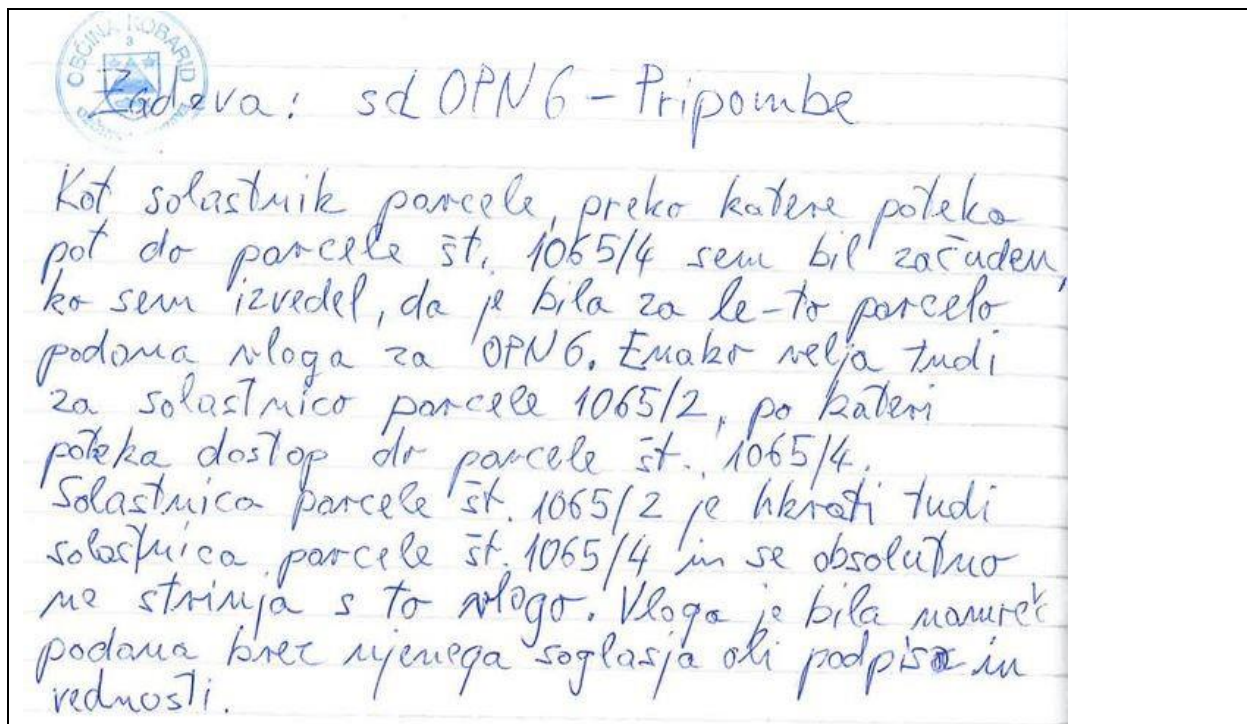 OBČINA KOBARID
3
Zadeva: sd OPN 6 - Pripombe
Kot solastnik parcele, preko katere poteka
pot do parcele št. 1065/4 sem bil začuden,
ko sem izvedel, da je bila za le-to parcelo
podana vloga za OPN 6. Enako velja tudi
za solastnico parcele 1065/2, po kateri
poteka dostop do parcele št. 1065/4.
Solastnica parcele št. 1065/2 je hkrati tudi
solastnica parcele št. 1065/4 in se absolutno
ne strinja s to vlogo. Vloga je bila namreč
podana brez njenega soglasja ali podpisa in
vednosti.